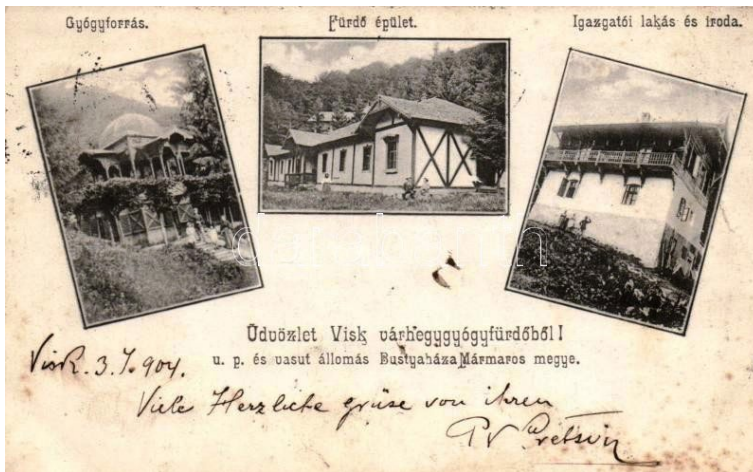 Gyógyforrás.
Fürdő épület.
Igazgatói lakás és iroda.
Üdvözlet Visk várhegygyógyfürdőből!
u. p. és vasut állomás Bustyaháza Mármaros megye.
Visk. 3. 904.
Viele Herzliche grüse von ihren